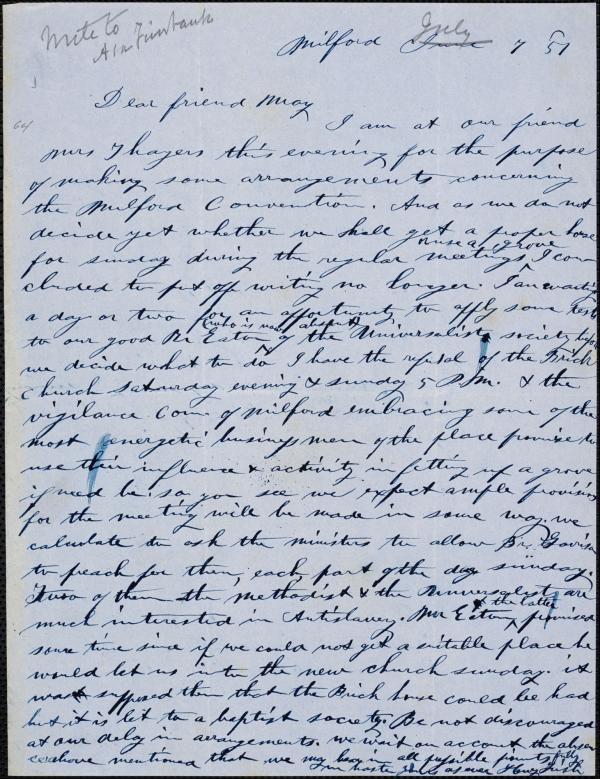 Write to
A M Fairbank
Milford June July 7 51
64
Dear friend May
I am at our friend
Mrs Thayers this evening for the purpose
of making some arrangements concerning
the Milford Convention. And as we do not
decide yet whether we shall get a proper house
or use a grove
for sunday during the regular meetings, I con
cluded to put off writing no longer. I am waiting
a day or two for an opportunity to apply some
(who is now absent)
to our good Mr Eaton of the Universalist society before
we decide what to do I have the refusal of the Brick
Church saturday evening & sunday 5 P.M. & the
vigilance Com of Milford embracing some of the
most energetic business men of the place promise to
use their influence & activity in getting up a grove
if need be. so you see we expect ample provision
for the meeting will be made in some way. we
calculate to ask the ministers to allow Br. Garrison
to preach for them, each part of the day sunday.
Two of them the methodist & the Universalist are
much interested in Antislavery. Mr Eaton & the latter promised
some time since if we could not get a suitable place he
would let us into the new church sunday. it
was supposed then that the Brick house could be had
but it is let to a baptist society. Be not discouraged
at our delay in arrangements. we wait on account the absence
above mentioned that we may have all possible points
in